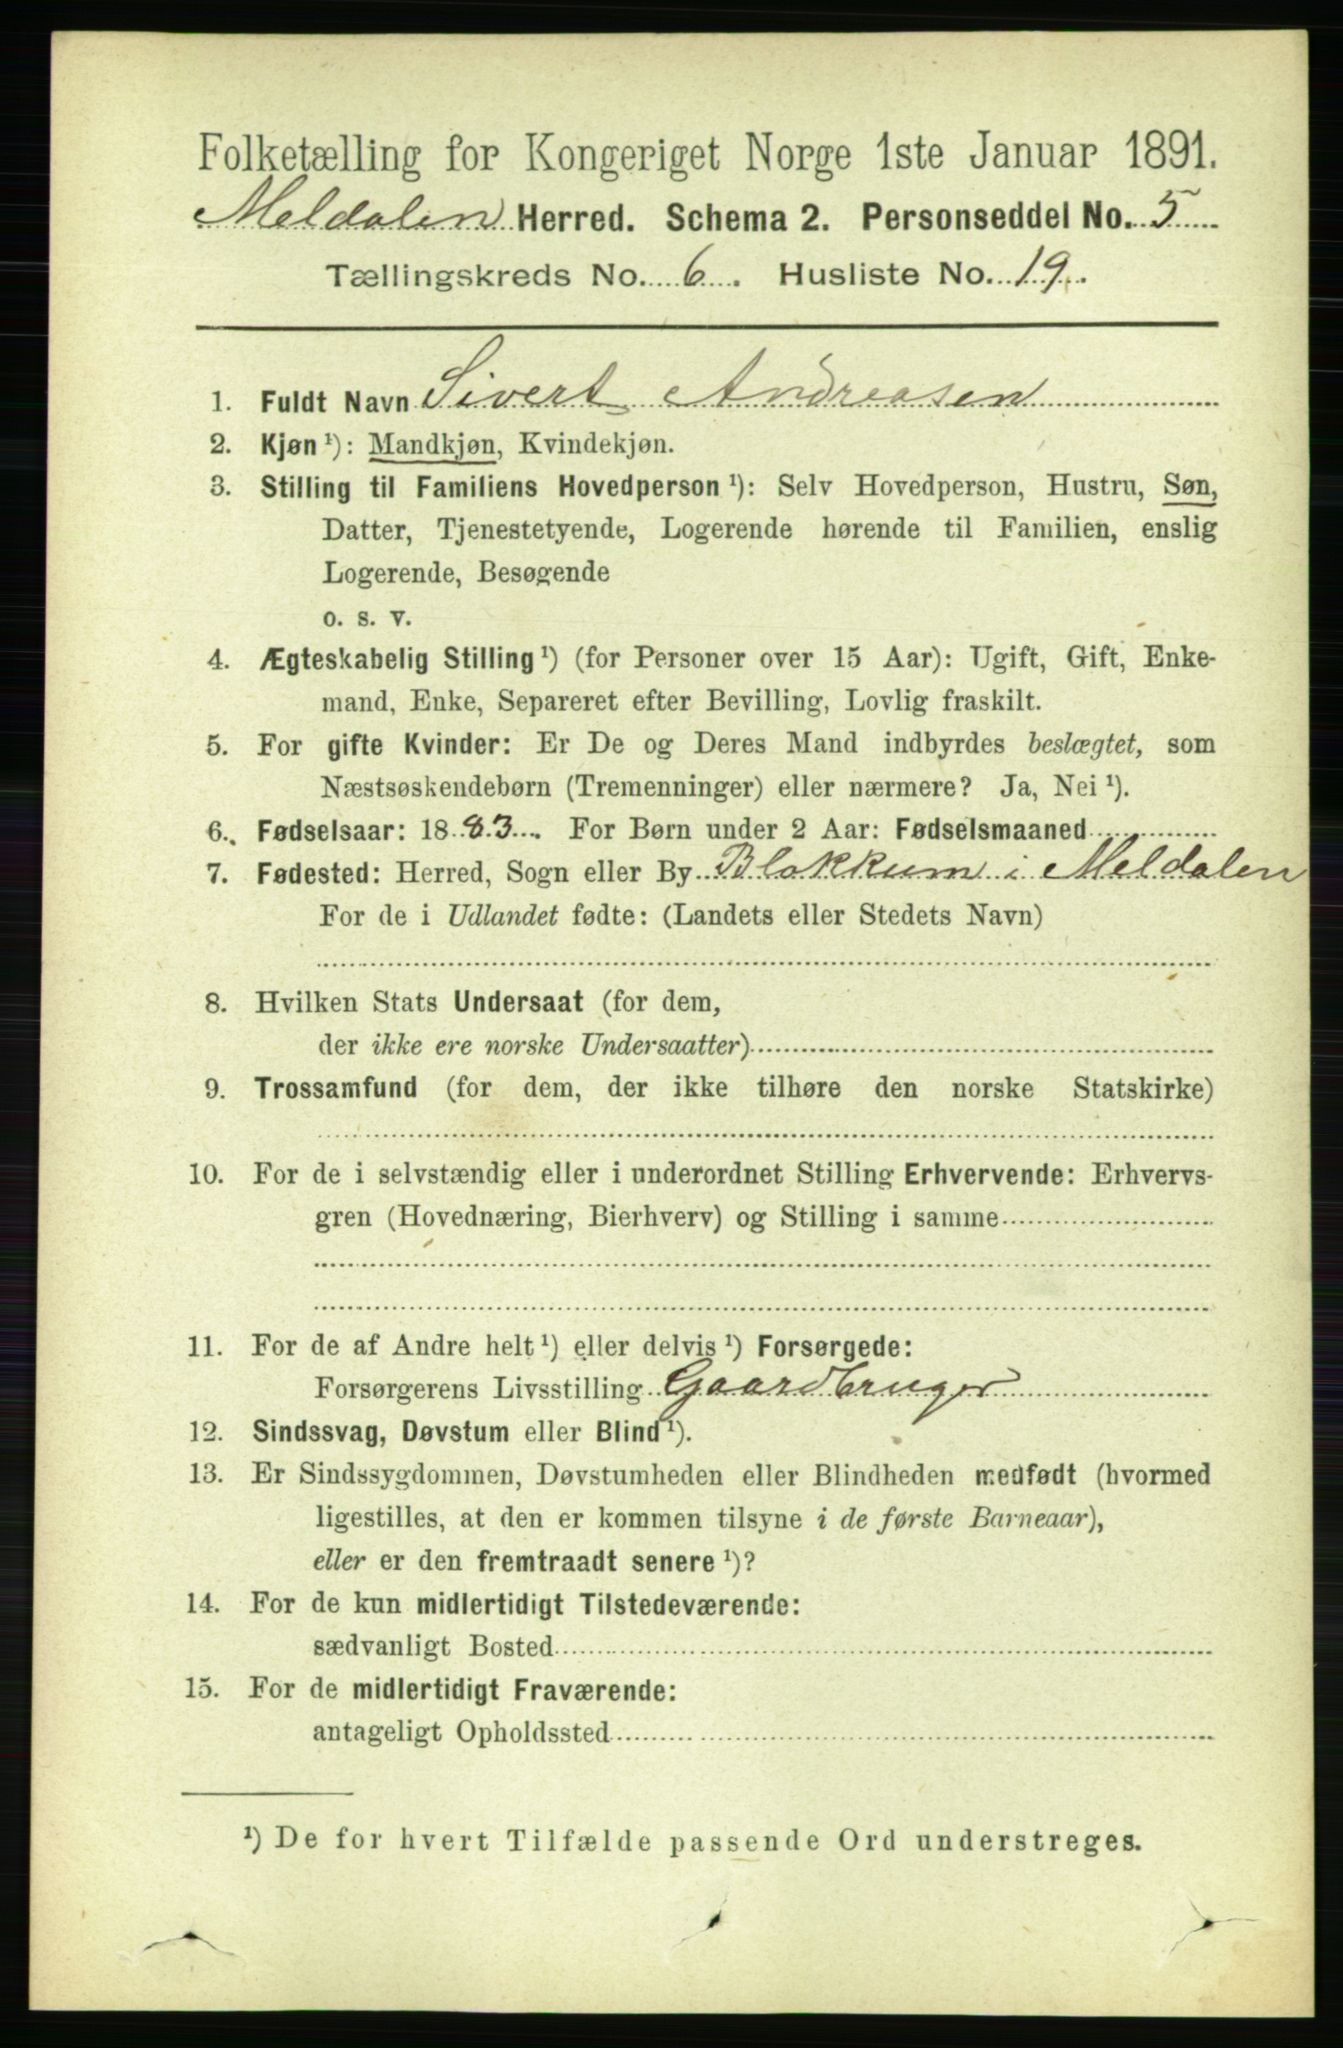 Folketælling for Kongeriget Norge 1ste Januar 1891.
Meldalen Herred. Schema 2. Personseddel No. 5
Tællingskreds No. 6. Husliste No. 19.
1. Fuldt Navn Sivert Andreasen
2. Kjøn ¹): Mandkjøn, Kvindekjøn.
3. Stilling til Familiens Hovedperson ¹): Selv Hovedperson, Hustru, Søn,
Datter, Tjenestetyende, Logerende hørende til Familien, enslig
Logerende, Besøgende
o. s. v.
4. Ægteskabelig Stilling ¹) (for Personer over 15 Aar): Ugift, Gift, Enke-
mand, Enke, Separeret efter Bevilling, Lovlig fraskilt.
5. For gifte Kvinder: Er De og Deres Mand indbyrdes beslægtet, som
Næstsøskendebørn (Tremenninger) eller nærmere? Ja, Nei ¹).
6. Fødselsaar: 1883. For Børn under 2 Aar: Fødselsmaaned
7. Fødested: Herred, Sogn eller By Blokkum i Meldalen
For de i Udlandet fødte: (Landets eller Stedets Navn)
8. Hvilken Stats Undersaat (for dem,
der ikke ere norske Undersaatter)
9. Trossamfund (for dem, der ikke tilhøre den norske Statskirke)
10. For de i selvstændig eller i underordnet Stilling Erhvervende: Erhvervs-
gren (Hovednæring, Bierhverv) og Stilling i samme
11. For de af Andre helt ¹) eller delvis ¹) Forsørgede:
Forsørgerens Livsstilling Gaardbruger
12. Sindssvag, Døvstum eller Blind ¹).
13. Er Sindssygdommen, Døvstumheden eller Blindheden medfødt (hvormed
ligestilles, at den er kommen tilsyne i de første Barneaar),
eller er den fremtraadt senere ¹)?
14. For de kun midlertidigt Tilstedeværende:
sædvanligt Bosted
15. For de midlertidigt Fraværende:
antageligt Opholdssted
¹) De for hvert Tilfælde passende Ord understreges.